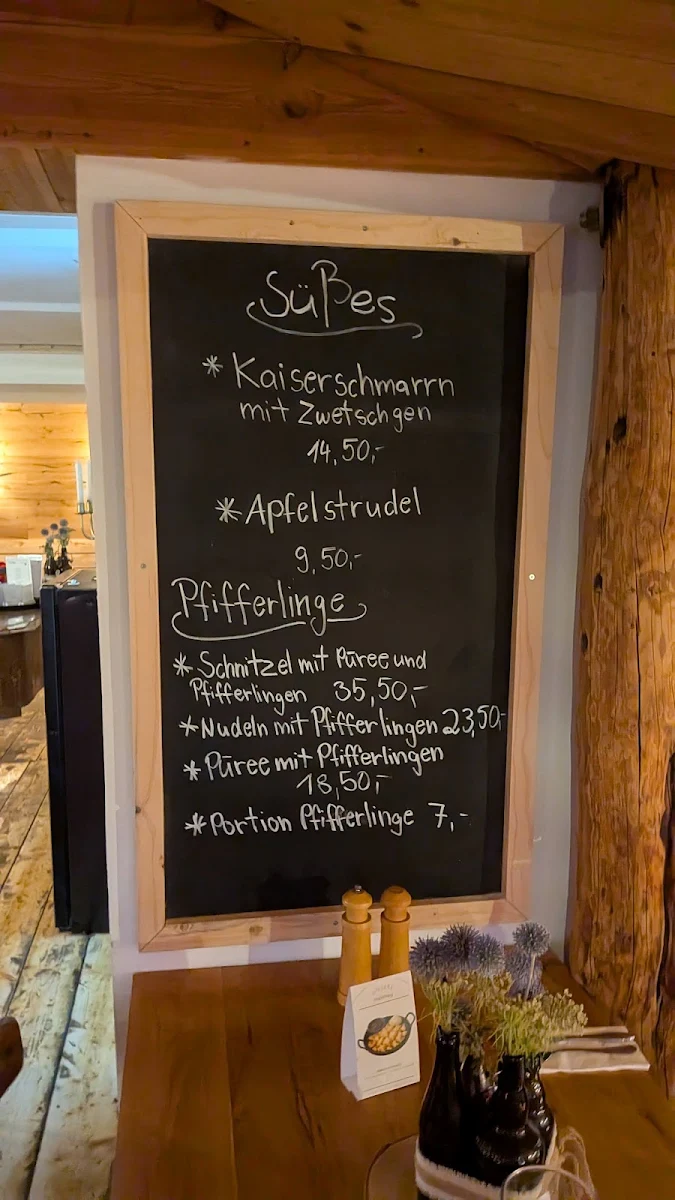 Süßes
* Kaiserschmarrn
mit Zwetschgen
14,50,-
* Apfelstrudel
9,50,-
Pfifferlinge
* Schnitzel mit Püree und
Pfifferlingen 35,50,-
* Nudeln mit Pfifferlingen 23,50,-
* Püree mit Pfifferlingen
18,50,-
* Portion Pfifferlinge 7,-